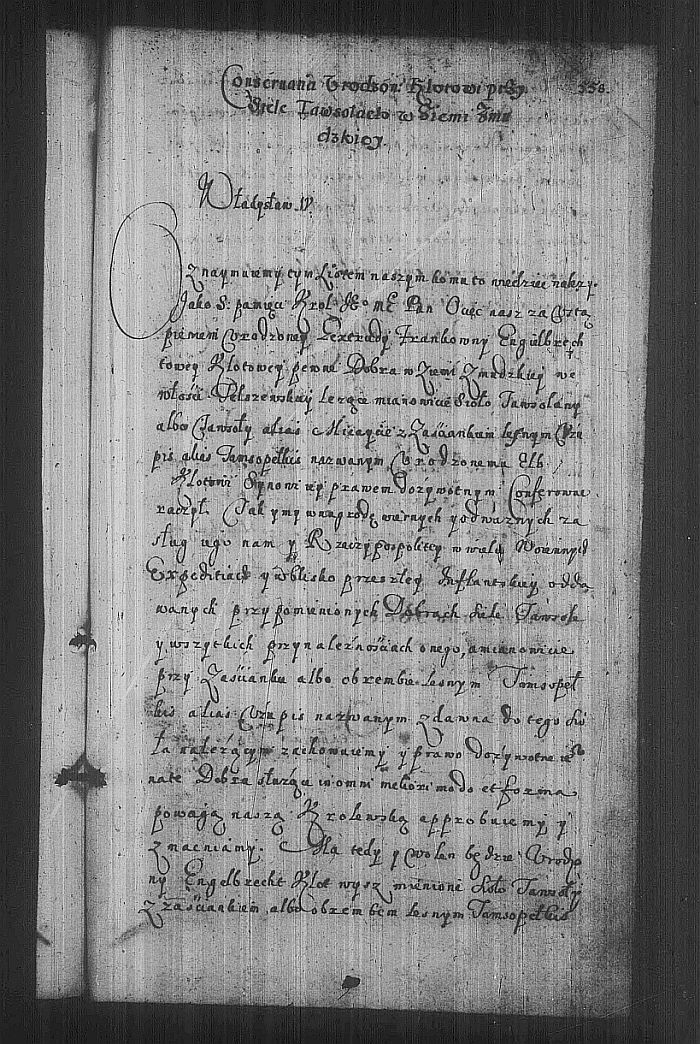 Conseruatia Vrodzon: Klotowi przy 558.
Siele Tawsolach w Ziemi Zmu
dzkiey.
Władysław IV.
Oznaymuiemy tym Listem naszym komu to wiedziec nalezy.
Jako S: pamięci Krol Je° Mć Pan Ociec nasz za Cżtą
pieniem Vrodzoney Frankowny Engelbrech
towey Klotowey pewne Dobra w Ziemi Zmudzkiey we
włości Telszewskiey lezące mianowicie Sioło Tawsolany
albo Tawsoły alias z Zaściankiem lesnym Czu
pis alias Tamsopełkis nazwanym Vrodzonemu Elb.
Klotowi Synowi iey prawem dożywotnym Conferowac
raczył. Tak y my w nagrodę wiernych y odwaznych za
sług iego nam y Rzeczypospolitey w wielu Woiennych
Expeditiach y w blisko przeszłey Inflantskiey odda
wanych przy pomienionych Dobrach Siele Tawsole
y wszytkich przynaleznościach onego, a mianowicie
przy Zaścianku albo obrembie lesnym Tamsopeł
kis alias Czupis nazwanym z dawna do tego Sio
ła nalezącym zachowuiemy y prawo dozywotne
na te Dobra słuzące in omni meliori modo et forma
powagą naszą Krolewską approbuiemy y
zmacniamy. Ma tedy y wolen będzie Vrodzo
ny Engelbrecht Klot wysz mienione Sioło Tawsoły
z zaściankiem albo obrembem lesnym Tamsopełkis